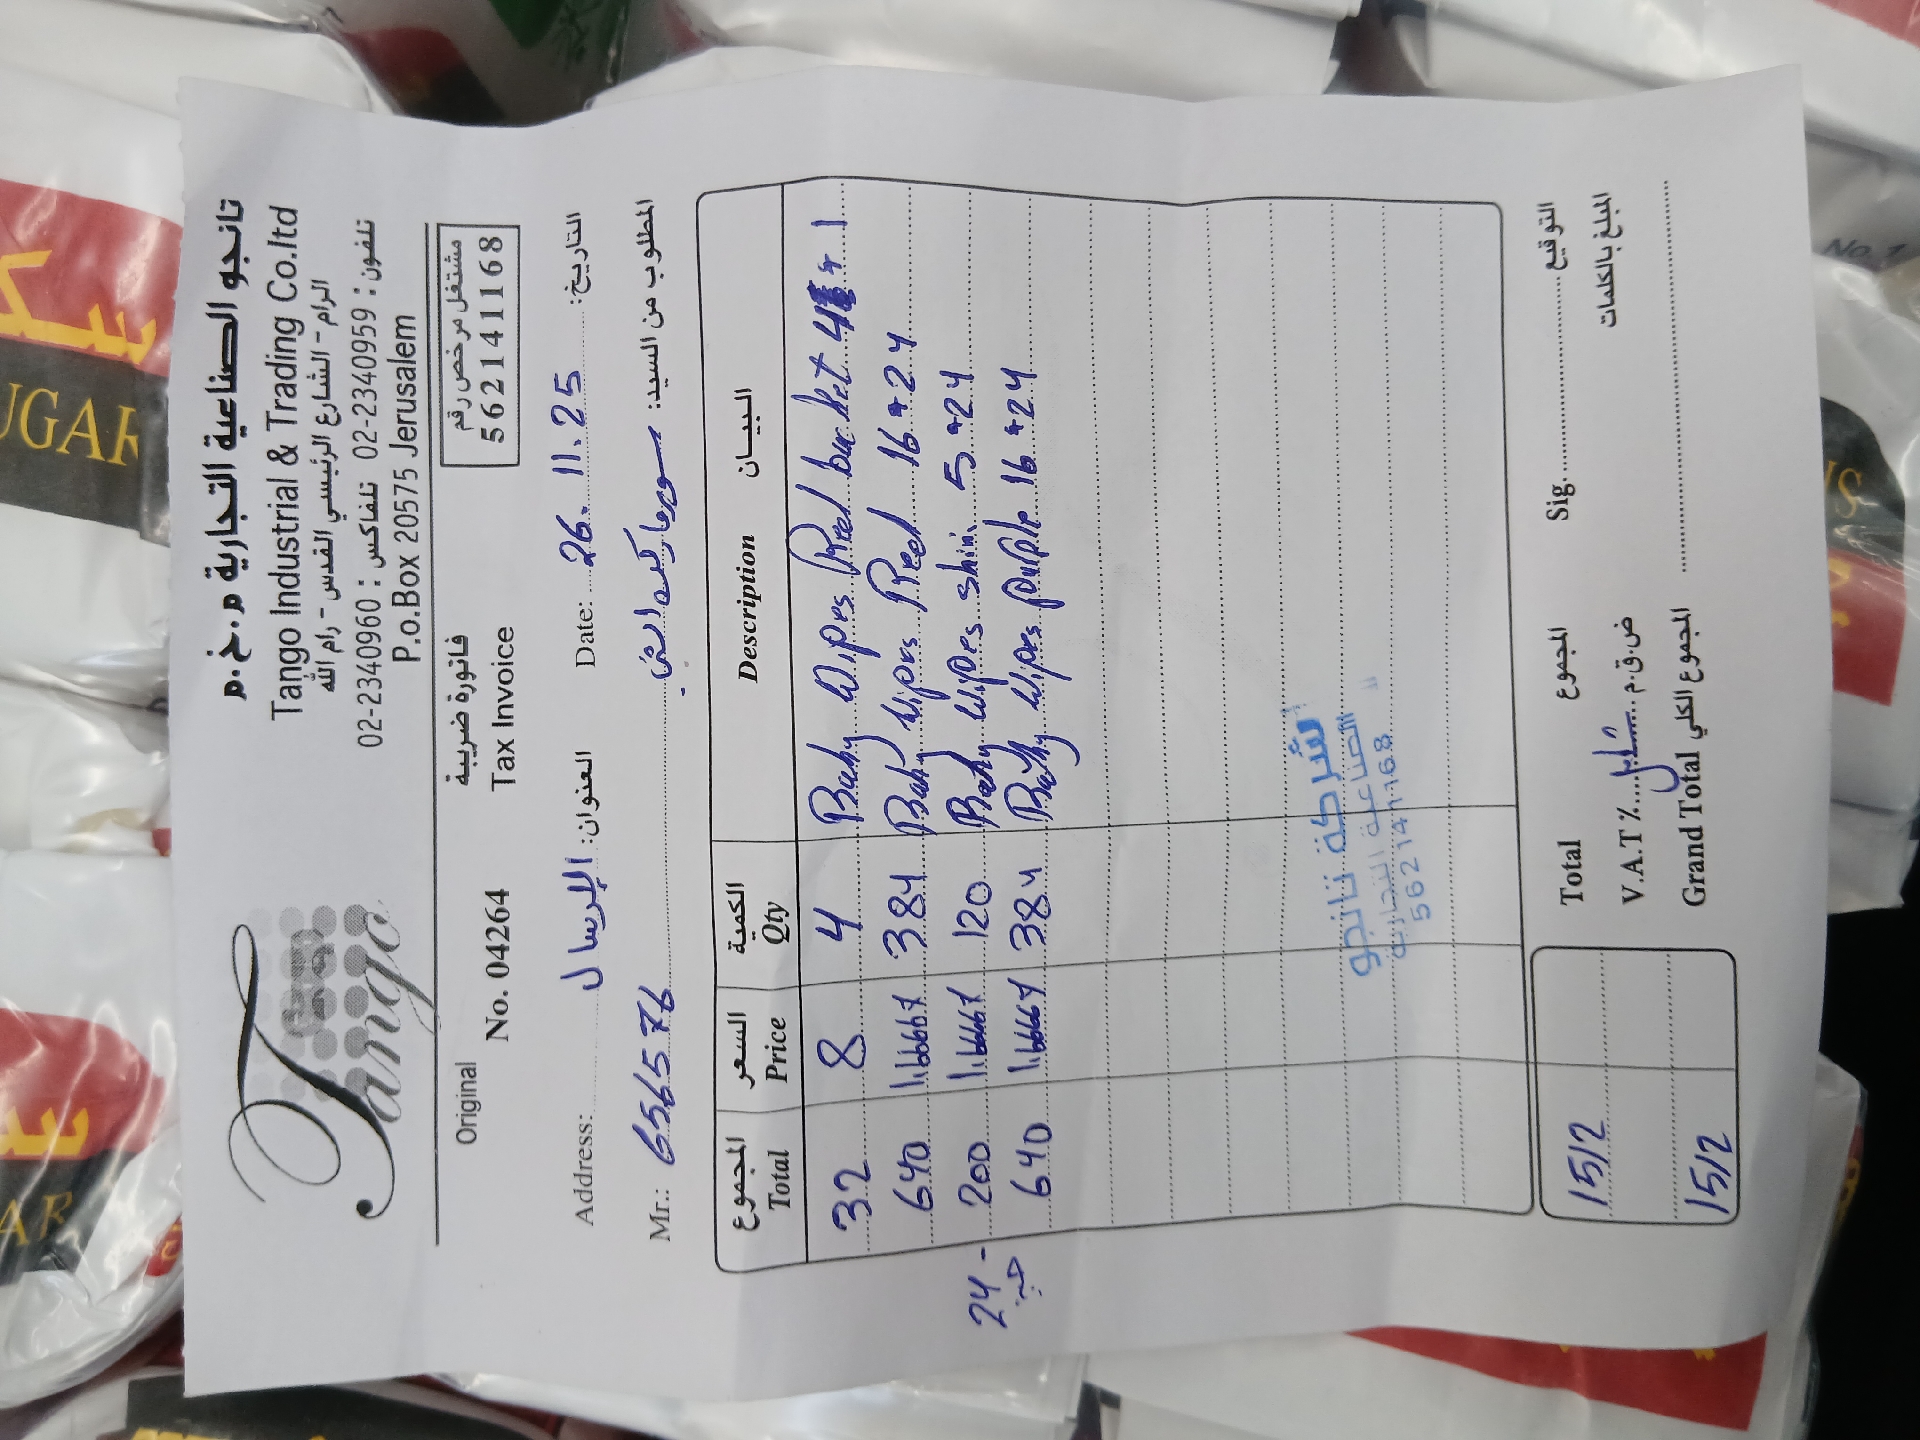 تانجو الصناعية التجارية م.خ.م
Tango Industrial & Trading Co.ltd
الرام - الشارع الرئيسي القدس - رام الله
تلفون: 02-2340959 تلفاكس: 02-2340960
P.o.Box 20575 Jerusalem
Tango
Original
فاتورة ضريبية
مشتغل مرخص رقم
No. 04264
Tax Invoice
562141168
Address: الإرسال العنوان: Date: 26.11.25 التاريخ:
Mr.: 656576 المطلوب من السيد:
المجموع السعر الكمية البيـــان
Total Price Qty Description
32 8 4 Baby Wipes Red bucket * 1
640 1.66667 384 Baby Wipes Red 16 * 24
200 1.66667 120 Baby Wipes shini 5 * 24
640 1.66667 384 Baby Wipes purple 16 * 24
24 -
شركة تانجو
الصناعية التجارية
562141168
1512 Total المجموع Sig. التوقيع
V.A.T % شامل ض.ق.م المبلغ بالكلمات
1512 Grand Total المجموع الكلي
سكر
SUGAR
No. 1